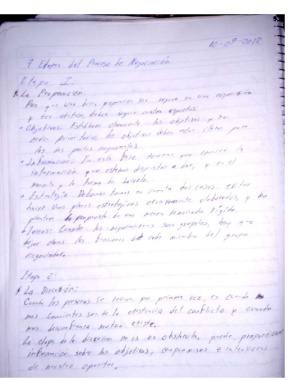 10-09-2018
7 Etapas del Proceso de Negociación
Etapa 1:
La Preparación:
Para que una buena preparación nos asegure en una negociación
y sea exitosa, debes seguir varios aspectos:
Objetivos: Establecer claramente los objetivos y su
orden prioritario, los objetivos deben estar claros para
las dos partes
Información: En esta fase, tenemos que conocer la
información que estamos dispuestos a dar, y en el
momento y la forma de hacerlo.
Estrategia: Debemos tener en cuenta dos cosas, evitar
hacer unos planes estratégicos excesivamente elaborados, y no
plantear la propuesta de una manera demasiado rígida.
Tareas: Cuando las negociaciones son grupales, hay que
dejar claras las funciones de cada miembro del grupo
negociador.
Etapa 2:
La Discusión:
Cuando las personas se reúnen por primera vez, es cuando
más conscientes son de la existencia del conflicto y cuando
más desconfianza mutua existe.
La etapa de la discusión no es un obstáculo, puede proporcionar
información sobre los objetivos, compromisos e intenciones
de nuestro opositor.